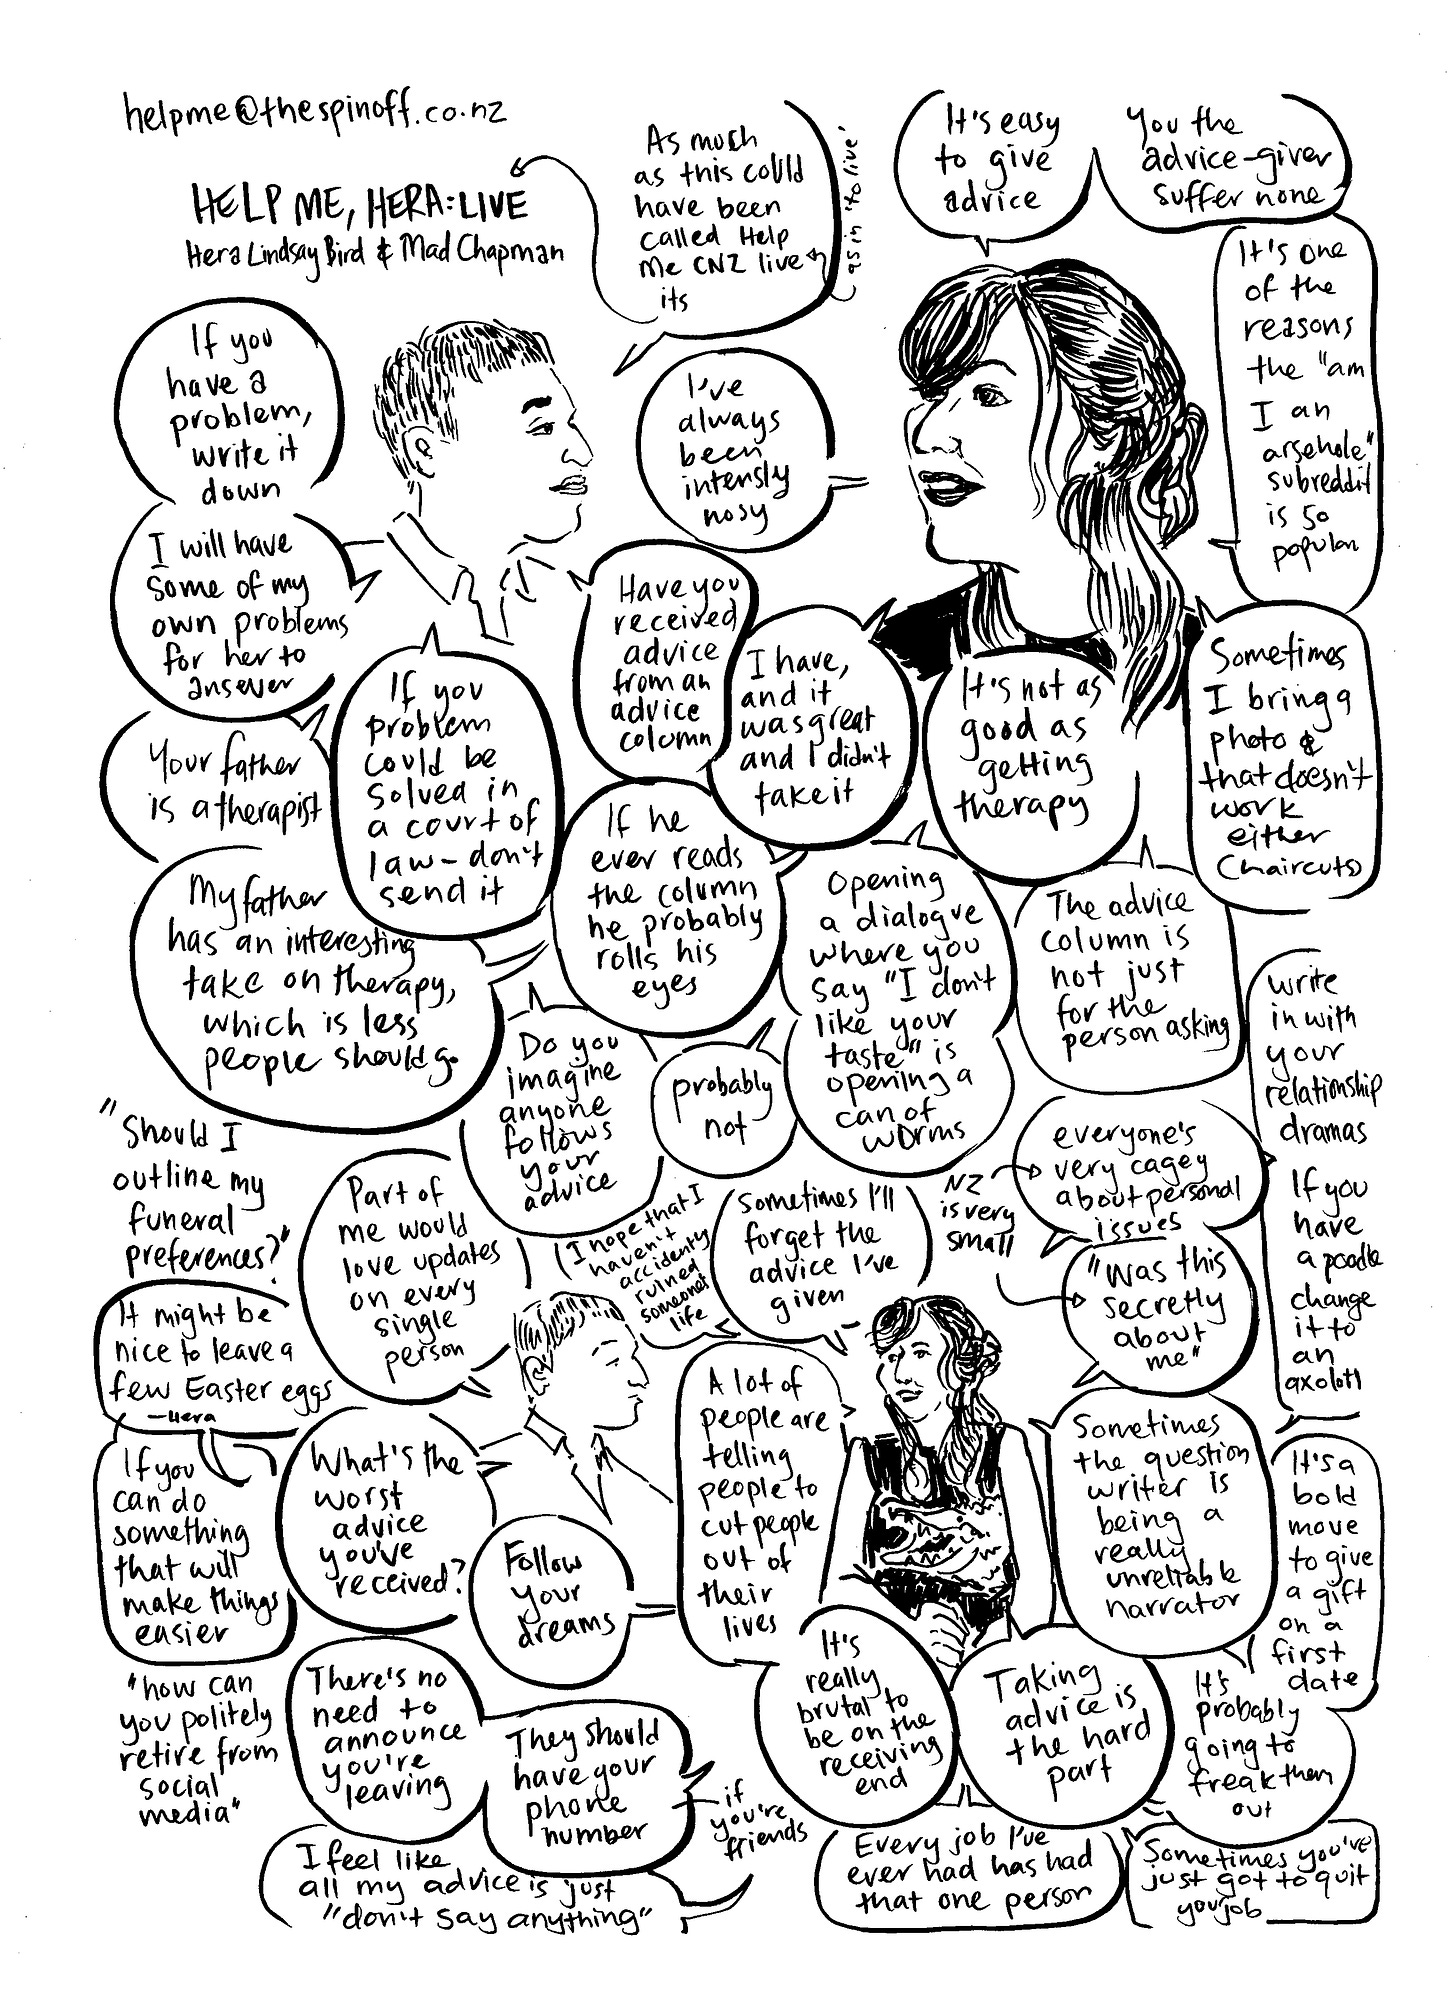 helpme@thespinoff.co.nz
HELP ME, HERA: LIVE
Hera Lindsay Bird & Mad Chapman
As much
as this could
have been
called Help
me CNZ live
its
as in 'to live'
It's easy
to give
advice
You the
advice-giver
suffer none
It's one
of the
reasons
the "am
I an
arsehole"
subreddit
is so
popular
If you
have a
problem,
write it
down
I've
always
been
intensly
nosy
I will have
some of my
own problems
for her to
answer
Have you
received
advice
from an
advice
column
I have,
and it
was great
and I didn't
take it
It's not as
good as
getting
therapy
Sometimes
I bring a
photo &
that doesn't
work
either
(haircuts)
Your father
is a therapist
If you
problem
could be
solved in
a court of
law – don't
send it
If he
ever reads
the column
he probably
rolls his
eyes
My father
has an interesting
take on therapy,
which is less
people should go
Opening
a dialogue
where you
say "I don't
like your
taste" is
opening a
can of
worms
The advice
column is
not just
for the
person asking
write
in with
your
relationship
dramas
If you
have
a poodle
change
it to
an
axolotl
Do you
imagine
anyone
follows
your
advice
probably
not
everyone's
very cagey
about personal
issues
NZ
is very
small
"Was this
secretly
about
me"
"Should I
outline my
funeral
preferences?"
Part of
me would
love updates
on every
single
person
(I hope that I
haven't
accidently
ruined
someones
life
Sometimes I'll
forget the
advice I've
given
It might be
nice to leave a
few Easter eggs
—Hera
If you
can do
something
that will
make things
easier
What's the
worst
advice
you've
received?
Follow
your
dreams
A lot of
people are
telling
people to
cut people
out of
their
lives
Sometimes
the question
writer is
being a
really
unreliable
narrator
It's a
bold
move
to give
a gift
on a
first
date
It's
really
brutal to
be on the
receiving
end
Taking
advice is
the hard
part
It's
probably
going to
freak them
out
"how can
you politely
retire from
social
media"
There's no
need to
announce
you're
leaving
They should
have your
phone
number
if
you're
friends
I feel like
all my advice is just
"don't say anything"
Every job I've
ever had has had
that one person
Sometimes you've
just got to quit
your job